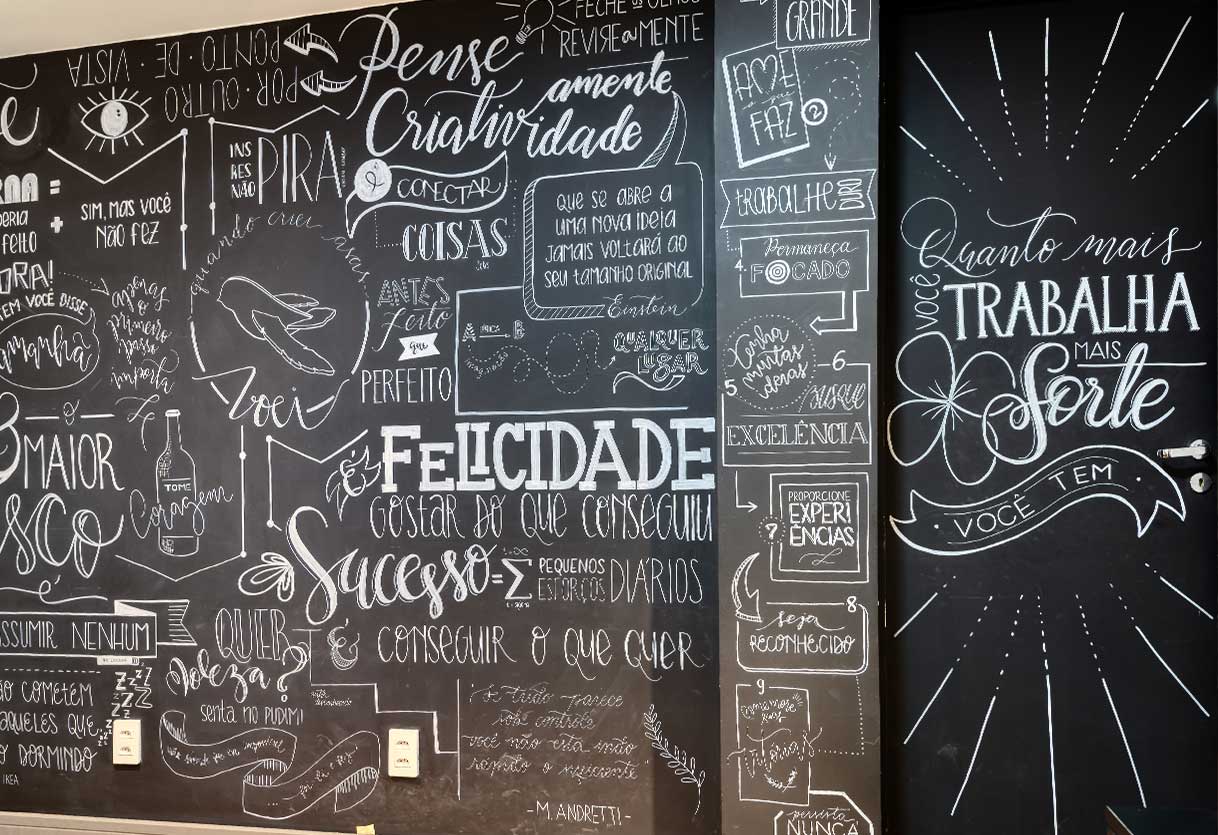 POR · OUTRO
PONTO · DE
VISTA ·
=
SIM, MAS VOCÊ
NÃO FEZ
+
FEITO
ORA!
TEM VOCÊ DISSE
amanhã
apenas
o
primeiro
passo
importa
É O
MAIOR
é
ASSUMIR NENHUM
COMETEM
AQUELES QUE
DORMINDO
IKEA
zzz
TOME
Coragem
INS
RES
NÃO
PIRA
quando criei asas
Voei
QUER
moleza?
senta no PUDIM!
Pense
Criativamente
Criatividade
é
CONECTAR
COISAS
FECHE OS OLHOS
REVIRE a MENTE
QUE SE ABRE A
UMA NOVA IDEIA
JAMAIS VOLTARÁ AO
SEU TAMANHO ORIGINAL
Einstein
ANTES
feito
que
PERFEITO
A
B
QUALQUER
LUGAR
é
FELICIDADE
GOSTAR DO QUE CONSEGUIU
Sucesso = Σ PEQUENOS
ESFORÇOS DIÁRIOS
& CONSEGUIR O QUE QUER
"Se tudo parece
sob controle
você não está indo
rápido o suficiente"
- M. ANDRETTI -
GRANDE
AME
o que
FAZ
2
TRABALHE DURO
4
Permaneça
FOCADO
5
Tenha
muitas
ideias
6
BUSQUE
EXCELÊNCIA
7
PROPORCIONE
EXPERI
ÊNCIAS
8
seja
RECONHECIDO
9
comemore
suas
vitórias
persista
NUNCA
Quanto mais
VOCÊ
TRABALHA
MAIS
Sorte
· VOCÊ TEM ·